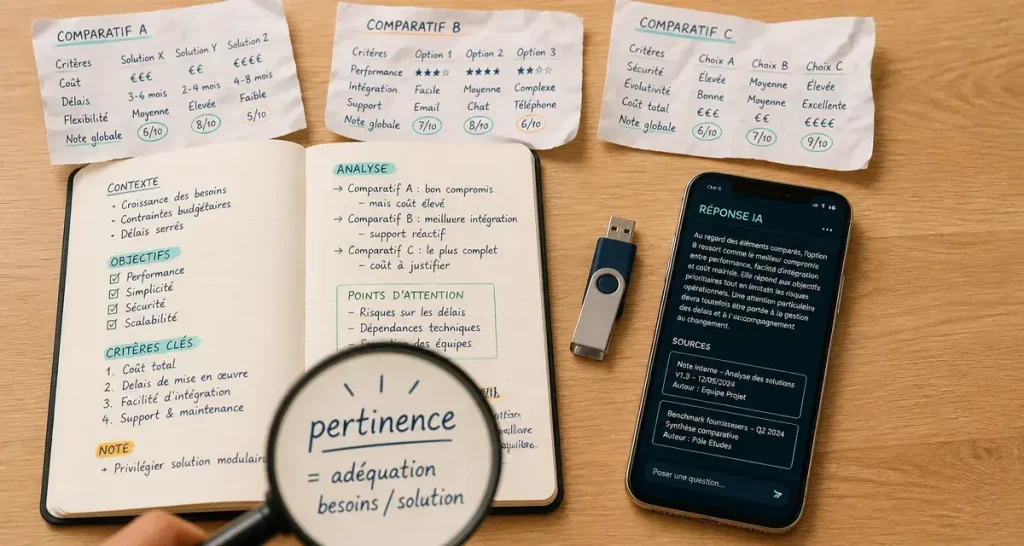 COMPARATIF A
Critères Solution X Solution Y Solution Z
Coût €€€ €€ €€€€
Délais 3-6 mois 2-4 mois 4-8 mois
Flexibilité Moyenne Élevée Faible
Note globale 6/10 8/10 5/10
COMPARATIF B
Critères Option 1 Option 2 Option 3
Performance ★★★☆ ★★★★ ★★☆☆
Intégration Facile Moyenne Complexe
Support Email Chat Téléphone
Note globale 7/10 8/10 6/10
COMPARATIF C
Critères Choix A Choix B Choix C
Sécurité Élevée Moyenne Élevée
Évolutivité Bonne Moyenne Excellente
Coût total €€€ €€ €€€€
Note globale 6/10 7/10 9/10
CONTEXTE
• Croissance des besoins
• Contraintes budgétaires
• Délais serrés
OBJECTIFS
☑ Performance
☑ Simplicité
☑ Sécurité
☑ Scalabilité
CRITÈRES CLÉS
1. Coût total
2. Delais de mise en œuvre
3. Facilité d'intégration
4. Support & maintenance
NOTE
→ Privilégier solution modulaire
ANALYSE
→ Comparatif A : bon compromis
– mais coût élevé
→ Comparatif B : meilluere intégration
– support réactif
→ Comparatif C : le plus complet
– coût à justifier
POINTS D'ATTENTION
– Risques sur les délais
– Dépendances techniques
des équipes
pertinence
= adéquation
besoins / solution
RÉPONSE IA
Au regard des éléments comparés, l'option
B ressort comme le meilleur compromis
entre performance, facilité d'intégration
et coût maîtrisé. Elle répond aux objectifs
prioritaires tout en limitant les risques
opérationnels. Une attention particulière
devra toutefois être portée à la gestion
des délais et à l'accompagnement
au changement.
SOURCES
Note interne – Analyse des solutions
V1.3 – 12/05/2024
Auteur : Équipe Projet
Benchmark fournisseurs – Q2 2024
Synthèse comparative
Auteur : Pôle Études
Poser une question...